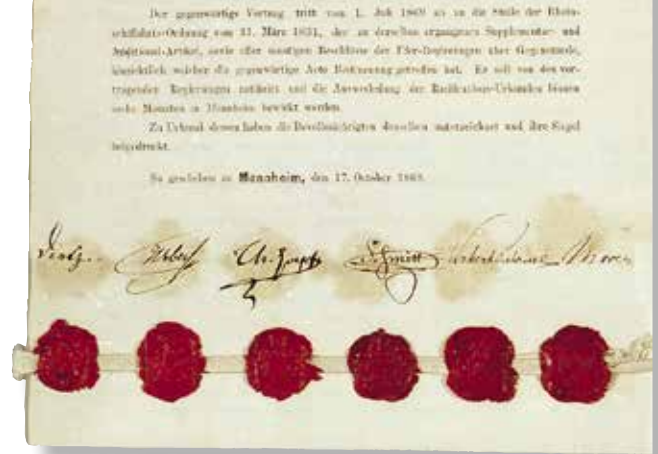 Der gegenwärtige Vertrag tritt vom 1. Juli 1869 an an die Stelle der Rhein-
schiffahrts-Ordnung vom 31. März 1831, der zu derselben ergangenen Supplementar- und
Additional-Artikel, sowie aller sonstigen Beschlüsse der Ufer-Regierungen über Gegenstände,
hinsichtlich welcher die gegenwärtige Acte Bestimmung getroffen hat. Er soll von den ver-
tragenden Regierungen ratificirt und die Auswechslung der Ratifications-Urkunden binnen
sechs Monaten in Mannheim bewirkt werden.
Zu Urkund dessen haben die Bevollmächtigten denselben unterzeichnet und ihre Siegel
beigedruckt.
So geschehen zu Mannheim, den 17. October 1868.
Schmitt